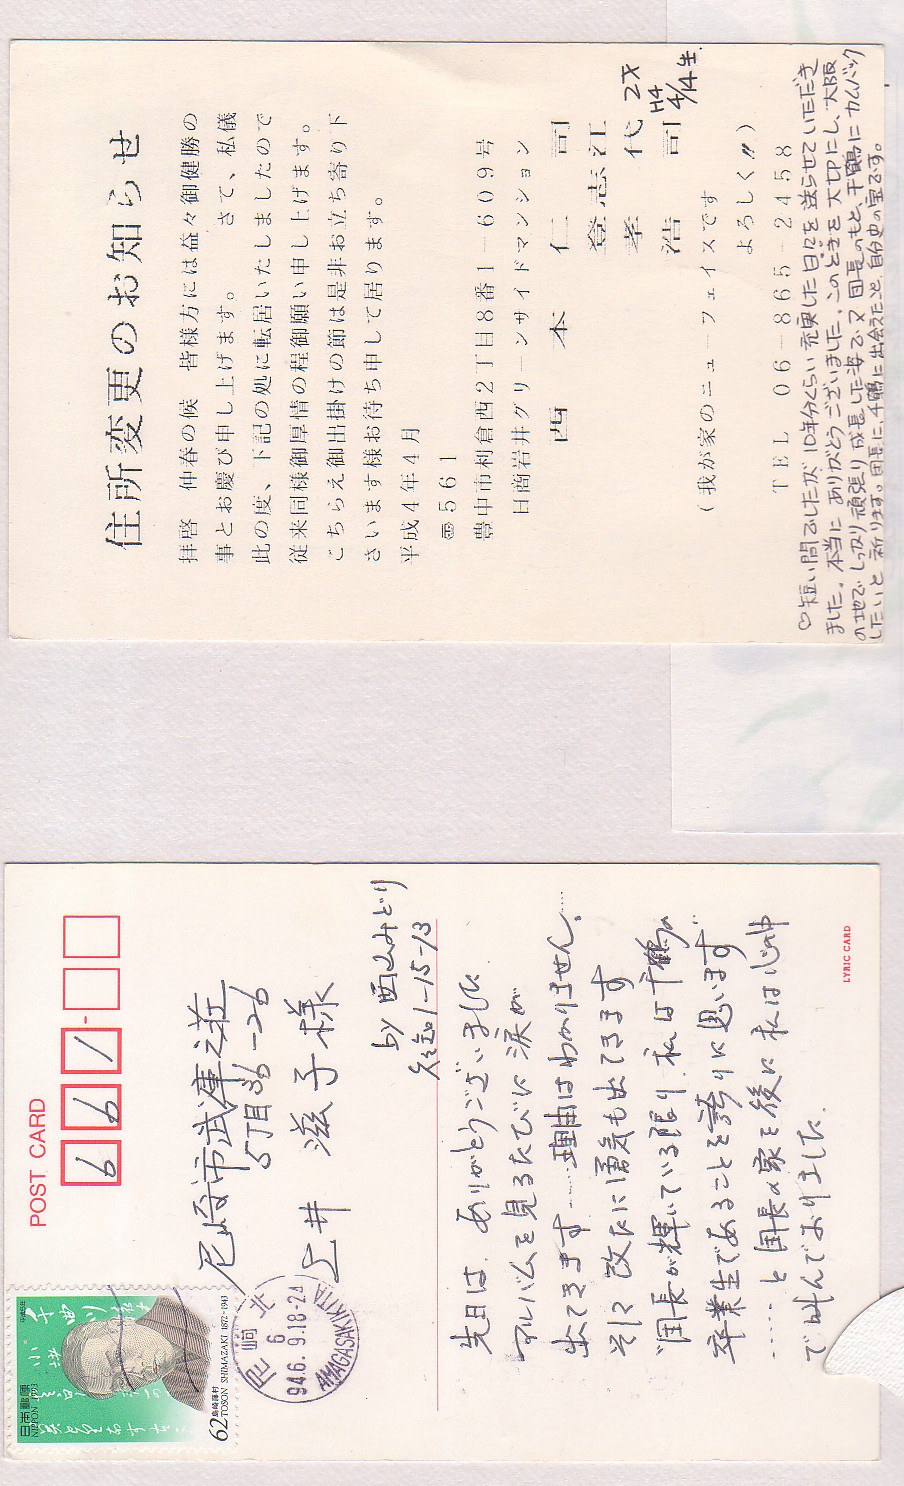 住所変更のお知らせ
拝啓 仲春の候 皆様方には益々御健勝の
事とお慶び申し上げます。 さて、私儀
此の度、下記の処に転居いたしましたので
従来同様御厚情の程御願い申し上げます。
こちらえ御出掛けの節は是非お立ち寄り下
さいます様お待ち申して居ります。
平成4年4月
〒561
豊中市利倉西2丁目8番1-609号
日商岩井グリーンサイドマンション
西本 仁司
登志江
孝代 2才
浩司 H4 4/4生.
(我が家のニューフェイスです
よろしく〃)
TEL 06-865-2458
♡短い間でしたが10年分くらい充実した日々を送らせていただき
ました。本当にありがとうございました。このどきを大切にし、大阪
の地でしっかり頑張り成長した姿で又、団長のもと、千鶴にカムバック
したいと祈ります。団長に、千鶴に出会えたこと、自分史の宝です。
POST CARD
661-
尼崎市武庫之荘
5丁目36-26
上井 滋子様
by 西山みどり
1-15-13
先日は、ありがとうございました
アルバムを見るたびに涙が
出てきます……理由はわかりません。……
そして 改たに勇気も出てきます
"団長が輝いている限り、私は千鶴の
卒業生であることを誇りに思います
……と 団長の家を後に 私は心の中
で叫んでおりました.
LYRIC CARD
日本郵便
NIPPON 1993
62
島崎藤村
TOSON SHIMAZAKI 1872-1943
尼崎北
6
94.6.9.18-24
AMAGASAKIKITA